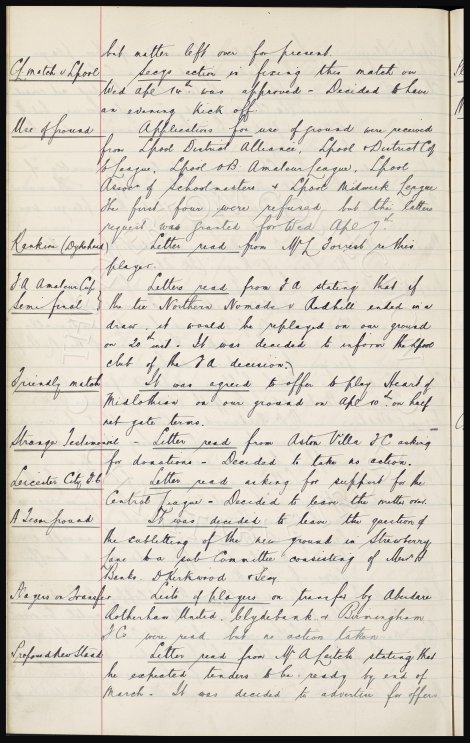 but matter left over for present.
Cf match v Lpool Secys action in fixing this match on
Wed Apl 14th was approved - Decided to have
an evening kick off.
Use of Ground Applications for use of ground were received
from Lpool District Alliance, Lpool & District Cof
E League, Lpool OB. Amateur League, Lpool
Assocn of Schoolmasters & Lpool Midweek League
The first four were refused but the latters
request was granted for Wed Apl 7th.
Rankin (Dykehead) Letter read from Mr L Forrest re this
player.
FA Amateur Cup Letters read from FA stating that if
Semi final } the tie Northern Nomads v Redhill ended in a
draw it would be replayed on our ground
on 20th inst. It was decided to inform the Lpool
club of the FA decision.
Friendly match It was agreed to offer to play Heart of
Midlothian on our ground on Apl 10th on half
net gate terms.
Strange Testimonial - Letter read from Aston Villa FC asking
for donations - Decided to take no action.
Leicester City FC Letter read asking for support for the
Central League - Decided to leave the matter over.
A Team ground It was decided to leave the question of
the subletting of the new ground in Strawberry
Lane to a sub Committee consisting of Messrs
Banks, D Kirkwood & Secy.
Players on Transfer Lists of players on transfer by Aberdare
Rotherham United, Clydebank & Birmingham
FC were read but no action taken.
Proposed New Stand Letter read from Mr A Leitch stating that
he expected tenders to be ready by end of
March - It was decided to advertise for offers